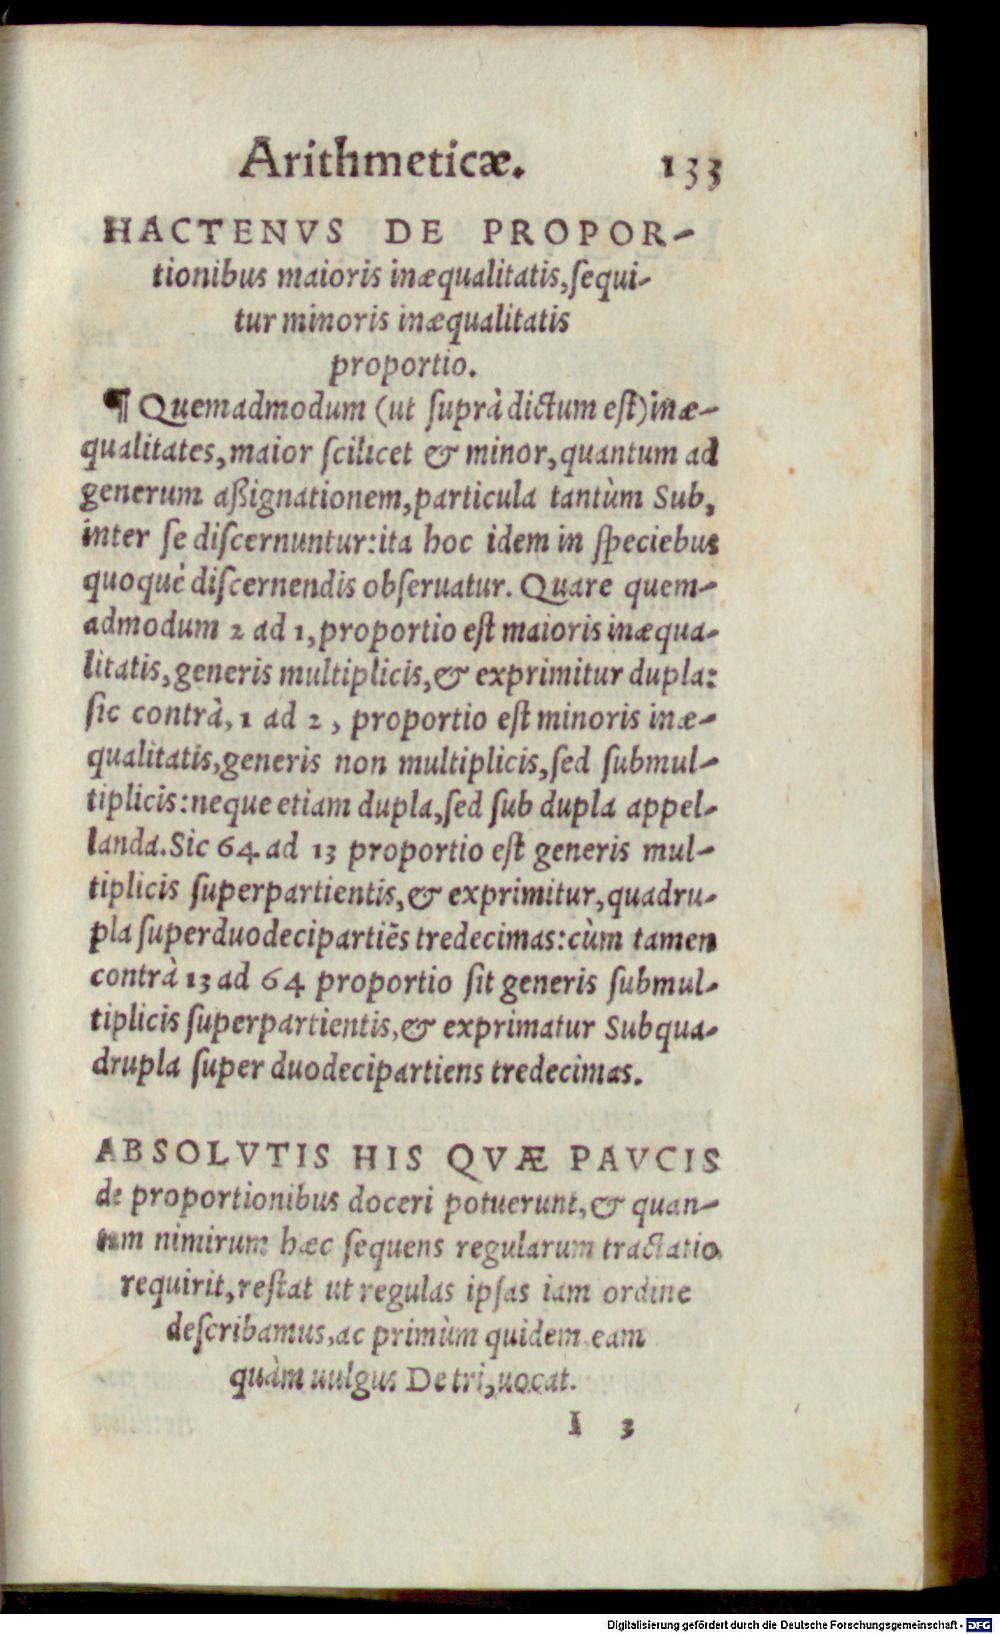 Arithmeticæ. 133
HACTENVS DE PROPOR-
tionibus maioris inæqualitatis, ſequi-
tur minoris inæqualitatis
proportio.
¶ Quemadmodum (ut ſuprà dictum eſt) inæ-
qualitates, maior ſcilicet & minor, quantum ad
generum aßignationem, particula tantùm Sub,
inter ſe diſcernuntur: ita hoc idem in ſpeciebus
quoqué diſcernendis obſeruatur. Quare quem-
admodum 2 ad 1, proportio eſt maioris inæqua-
litatis, generis multiplicis, & exprimitur dupla:
ſic contrà, 1 ad 2, proportio eſt minoris inæ-
qualitatis, generis non multiplicis, ſed ſubmul-
tiplicis: neque etiam dupla, ſed ſub dupla appel-
landa. Sic 64 ad 13 proportio eſt generis mul-
tiplicis ſuperpartientis, & exprimitur, quadru-
pla ſuperduodecipartiẽs tredecimas: cùm tamen
contrà 13 ad 64 proportio ſit generis ſubmul-
tiplicis ſuperpartientis, & exprimatur Subqua-
drupla ſuper duodecipartiens tredecimas.
ABSOLVTIS HIS QVÆ PAVCIS
de proportionibus doceri potuerunt, & quan-
tum nimirum hæc ſequens regularum tractatio
requirit, reſtat ut regulas ipſas iam ordine
deſcribamus, ac primùm quidem eam
quàm uulgus De tri, uocat.
I 3
Digitalisierung gefördert durch die Deutsche Forschungsgemeinschaft - DFG